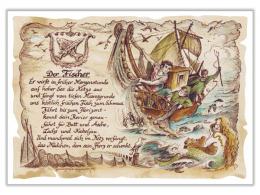 Der Fischer
Er wirft in früher Morgenstunde
auf hoher See die Netze aus
und fängt vom tiefen Meeresgrunde
uns köstlich frischen Fisch zum Schmaus.
Fährt bis zum Horizont -
kennt sein Revier genau -
fährt für Butt und Aale,
Lachs und Kabeljau.
Und manchmal sich im Netz verfängt,
das Mädchen, dem sein Herz er schenkt.